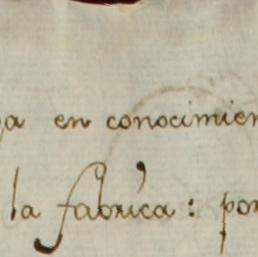 en conocimien
la fabrica: por